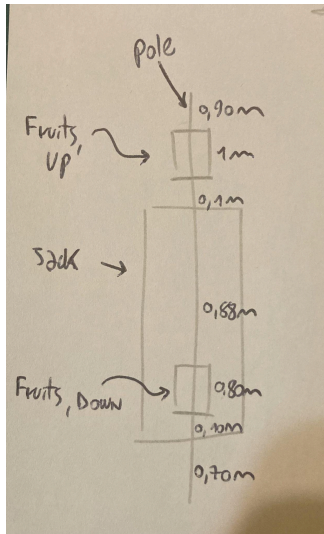 pole
0,90m
Fruits,
UP
1m
0,1m
Sack
0,88m
Fruits, DOWN
0,80m
0,10m
0,70m